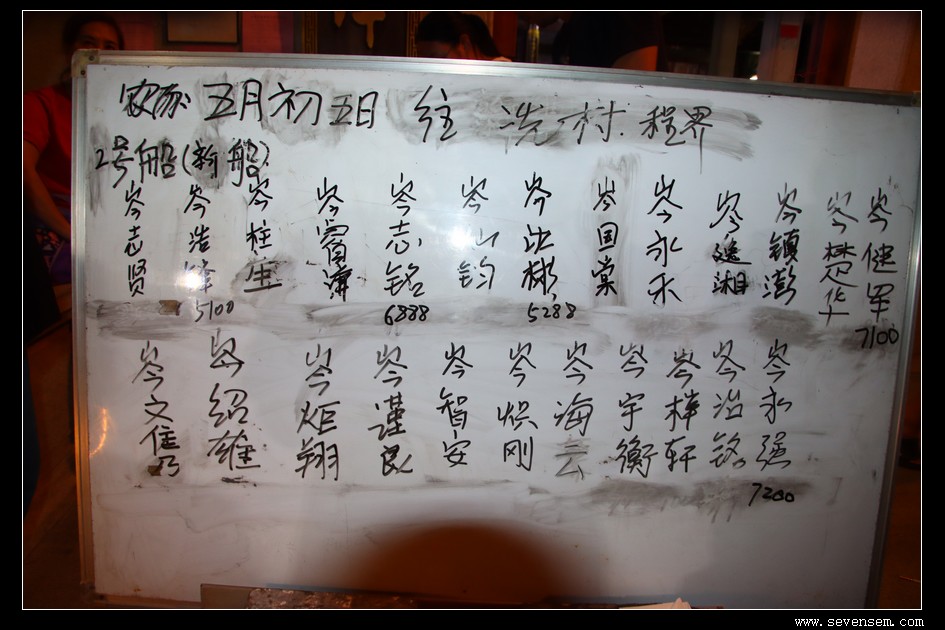 农历五月初五日 往 冼村 程界
2号船(新船)
岑志贤
岑浩锋 5100
岑柱
岑志铭 6888
岑 钧
岑 彬 5288
岑国棠
岑永禾
岑 湘
岑镇澎
岑楚华
岑健军 7100
岑文
岑绍雄
岑炬翔
岑谨良
岑智安
岑炽刚
岑海云
岑宇衡
岑梓轩
岑治铭
岑永强 7200
www.sevensem.com